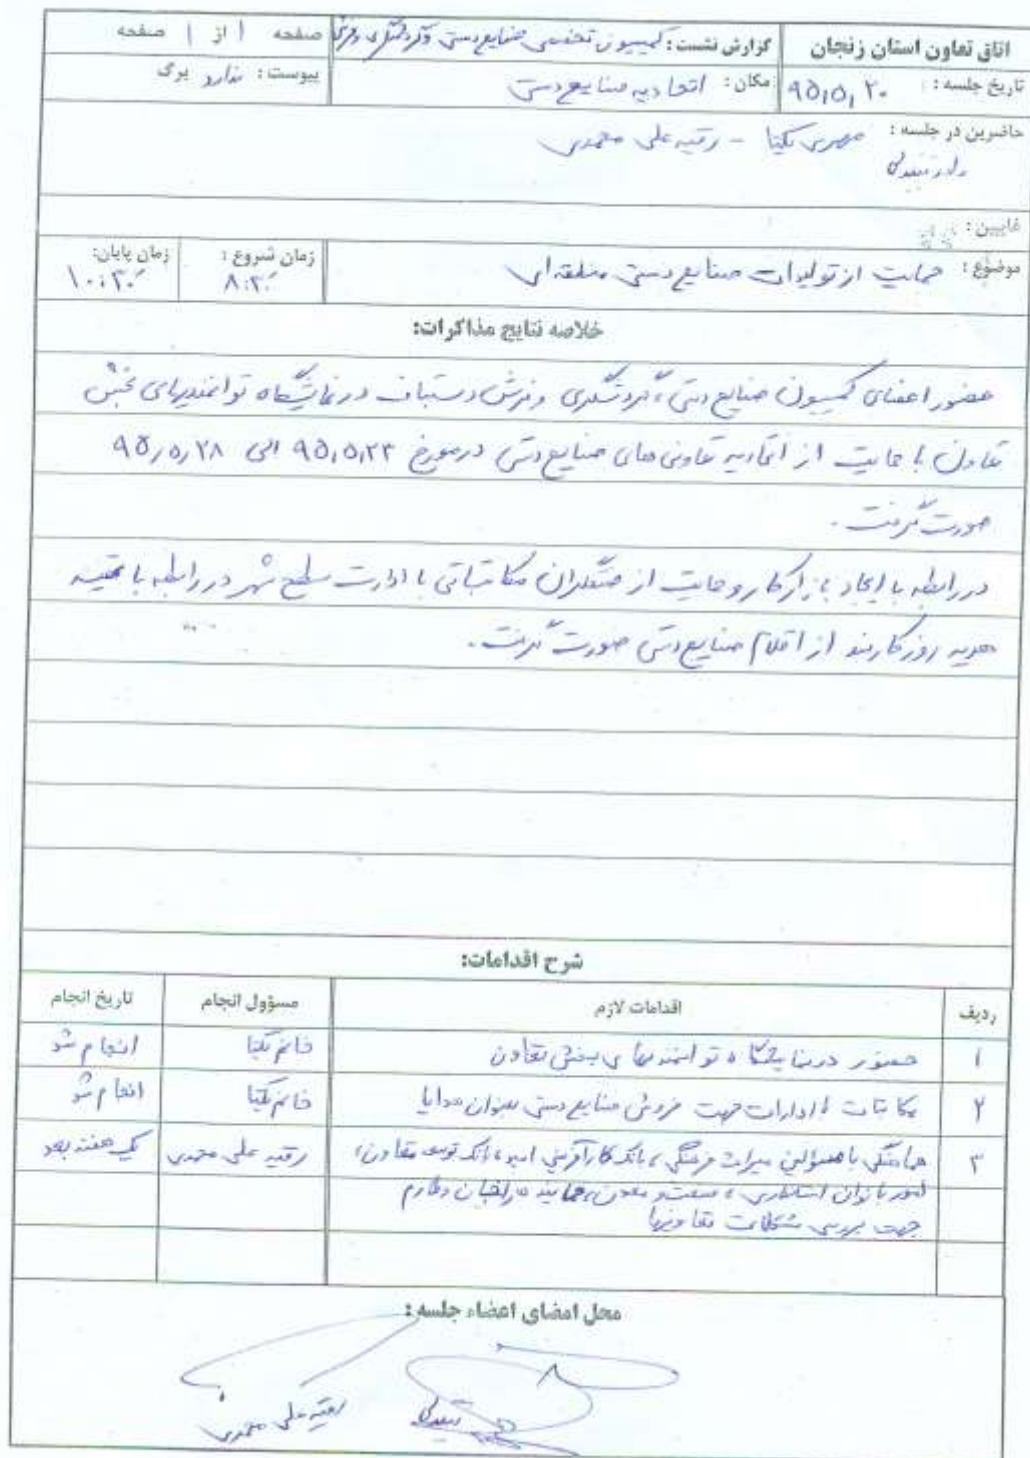 اتاق تعاون استان زنجان
گزارش نشست: کمیسیون تخصصی صنایع دستی و گردشگری و فرش
صفحه ۱ از ۱ صفحه
تاریخ جلسه: ۹۵,۵,۲۰
مکان: اتحادیه صنایع دستی
پیوست: ندارد برگ
حاضرین در جلسه: مهری یکتا - رقیه علی محمدی
غایبین:
موضوع: حمایت از تولیدات صنایع دستی منطقه ای
زمان شروع: ۸:۳۰
زمان پایان: ۱۰:۳۰
خلاصه نتایج مذاکرات:
حضور اعضای کمیسیون صنایع دستی، گردشگری و فرش دستباف در نمایشگاه توانمندیهای بخش
تعاون با حمایت از اتحادیه تعاونی های صنایع دستی در مورخ ۹۵,۵,۲۳ الی ۹۵,۵,۲۸
صورت گرفت.
در رابطه با ایجاد بازار کار و حمایت از صنعتگران مکاتباتی با ادارت سطح شهر در رابطه با تهیه
هدیه روز کارمند از اقلام صنایع دستی صورت گرفت.
شرح اقدامات:
ردیف اقدامات لازم مسؤول انجام تاریخ انجام
۱ حضور در نمایشگاه توانمندیهای بخش تعاون خانم یکتا انجام شد
۲ مکاتبات با ادارات جهت فروش صنایع دستی بعنوان هدایا خانم یکتا انجام شد
۳ هماهنگی با مسؤولین میراث فرهنگی، بانک کارآفرینی امید، بانک توسعه تعاون، رقیه علی محمدی یک هفته بعد
امور بانوان استانداری، صنعت و معدن، نماینده طارم
جهت بررسی مشکلات تعاونیها
محل امضای اعضاء جلسه:
رقیه علی محمدی